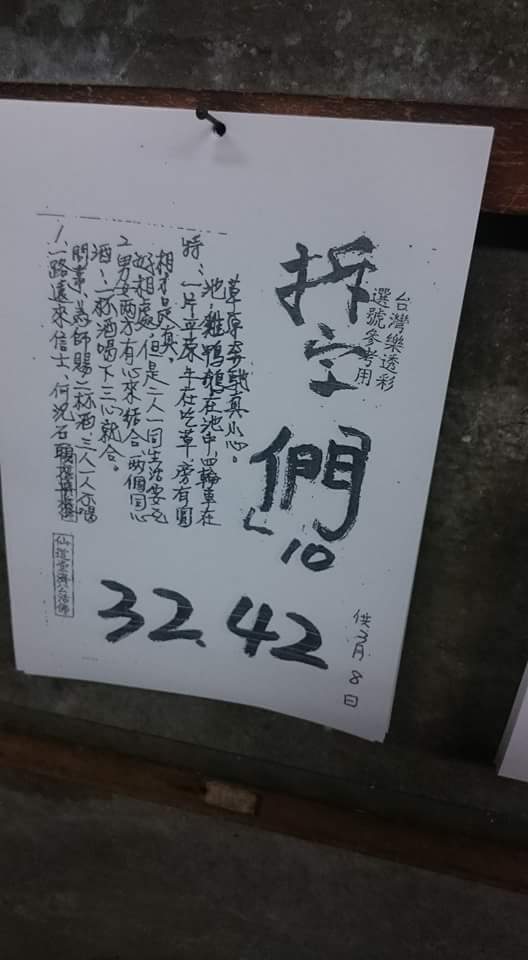 台灣樂透彩
選號參考用
供3月8日
拆空們
L10
32.42
1、一路遠來信士、何況石
問事、為師賜二杯酒三人一人不喝
酒、一杯酒喝下三心就合。
2、男女兩方有心來結合、兩個同心
好相處、但是二人一同生活要互
相才是真。
特:、一片平原牛在吃草、旁有圓
池、雞鴨鵝在池中、四輪車在
草原奔馳真小心。
仙道堂濟公活佛